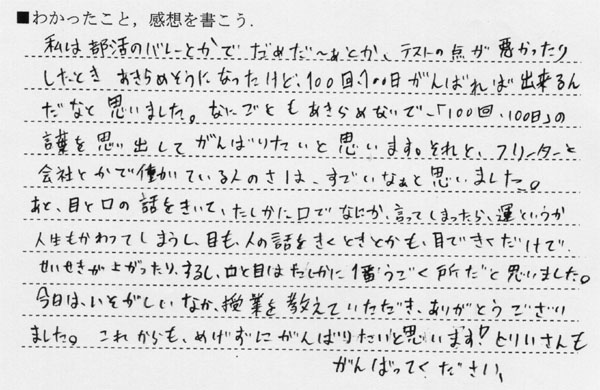 ■わかったこと，感想を書こう．
私は部活のバレーとかで だめだ〜ぁとか、テストの点が悪かったり
したとき あきらめそうになったけど、100回、100日がんばれば出来るん
だなと思いました。なにごともあきらめないで、「100回、100日」の
言葉を思い出してがんばりたいと思います。それと、フリーターと
会社とかで働いている人のさは、すごいなぁと思いました。
あと、目と口の話をきいて、たしかに口でなにか、言ってしまったら、運というか
人生もかわってしまうし、目も、人の話をきくときとかも、目できくだけで
せいせきが上がったり、するし、口と目はたしかに1番うごく所だと思いました。
今日は、いそがしいなか、授業を教えていただき、ありがとうござい
ました。これからも、めげずにがんばりたいと思います!とりいさんも
がんばってください、